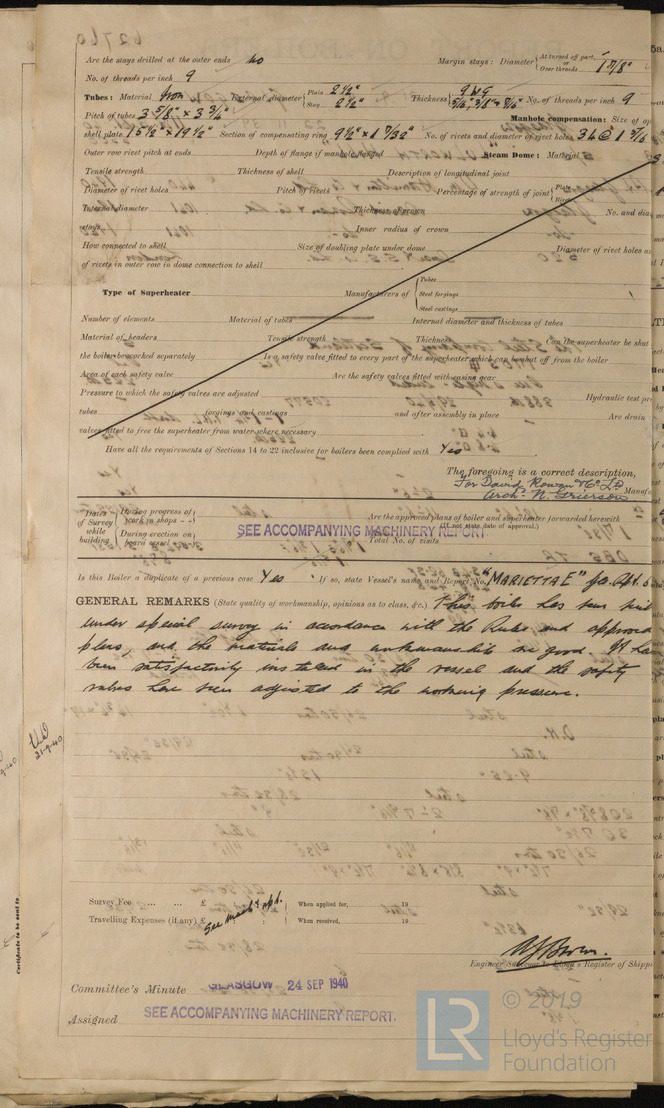 Are the stays drilled at the outer ends no Margin stays: Diameter { At turned off part, or Over threads 1 7/8"
No. of threads per inch 9
Tubes: Material Iron External diameter { Plain 2 1/2" Stay 2 1/2" Thickness { 9 WG 5/16", 3/8" & 7/16" No. of threads per inch 9
Pitch of tubes 3 5/8" x 3 3/4" Manhole compensation: Size of op
shell plate 15 1/2" x 19 1/2" Section of compensating ring 9 1/2" x 1 7/32" No. of rivets and diameter of rivet holes 34 @ 1 3/16
Outer row rivet pitch at ends Depth of flange if manhole flanged Steam Dome: Material
Tensile strength Thickness of shell Description of longitudinal joint
Diameter of rivet holes Pitch of rivets Percentage of strength of joint { Plate Rivets
Internal diameter Thickness of crown No. and dia
stays Inner radius of crown
How connected to shell Size of doubling plate under dome Diameter of rivet holes a
of rivets in outer row in dome connection to shell
Type of Superheater Manufacturers of { Tubes Steel forgings Steel castings
Number of elements Material of tubes Internal diameter and thickness of tubes
Material of headers Tensile strength Thickness Can the superheater be shut
the boiler be worked separately Is a safety valve fitted to every part of the superheater which can be shut off from the boiler
Area of each safety valve Are the safety valves fitted with easing gear
Pressure to which the safety valves are adjusted Hydraulic test pr
tubes forgings and castings and after assembly in place Are drain
valves fitted to free the superheater from water where necessary
Have all the requirements of Sections 14 to 22 inclusive for boilers been complied with Yes
The foregoing is a correct description,
For David Rowan & Co. Ld.
Arch. N. Grierson Manuf
Dates of Survey while building { During progress of work in shops - - During erection on board vessel - - - Are the approved plans of boiler and superheater forwarded herewith
(If not state date of approval.)
SEE ACCOMPANYING MACHINERY REPORT
Total No. of visits
Is this Boiler a duplicate of a previous case Yes If so, state Vessel's name and Report No. "MARIETTA E"
GENERAL REMARKS (State quality of workmanship, opinions as to class, &c.) This boiler has been
under special survey in accordance with the Rules and approved
plans, and the materials and workmanship are good. It has
been satisfactorily installed in the vessel and the safety
valves have been adjusted to the working pressure.
21-9-40
Certificate to be sent to
Survey Fee ... ... £ When applied for, 19
Travelling Expenses (if any) £ When received, 19
See Mach'y rpt.
Engineer Surveyor to Lloyd's Register of Shipp
Committee's Minute GLASGOW 24 SEP 1940
Assigned SEE ACCOMPANYING MACHINERY REPORT.
LR © 2019
Lloyd's Register
Foundation